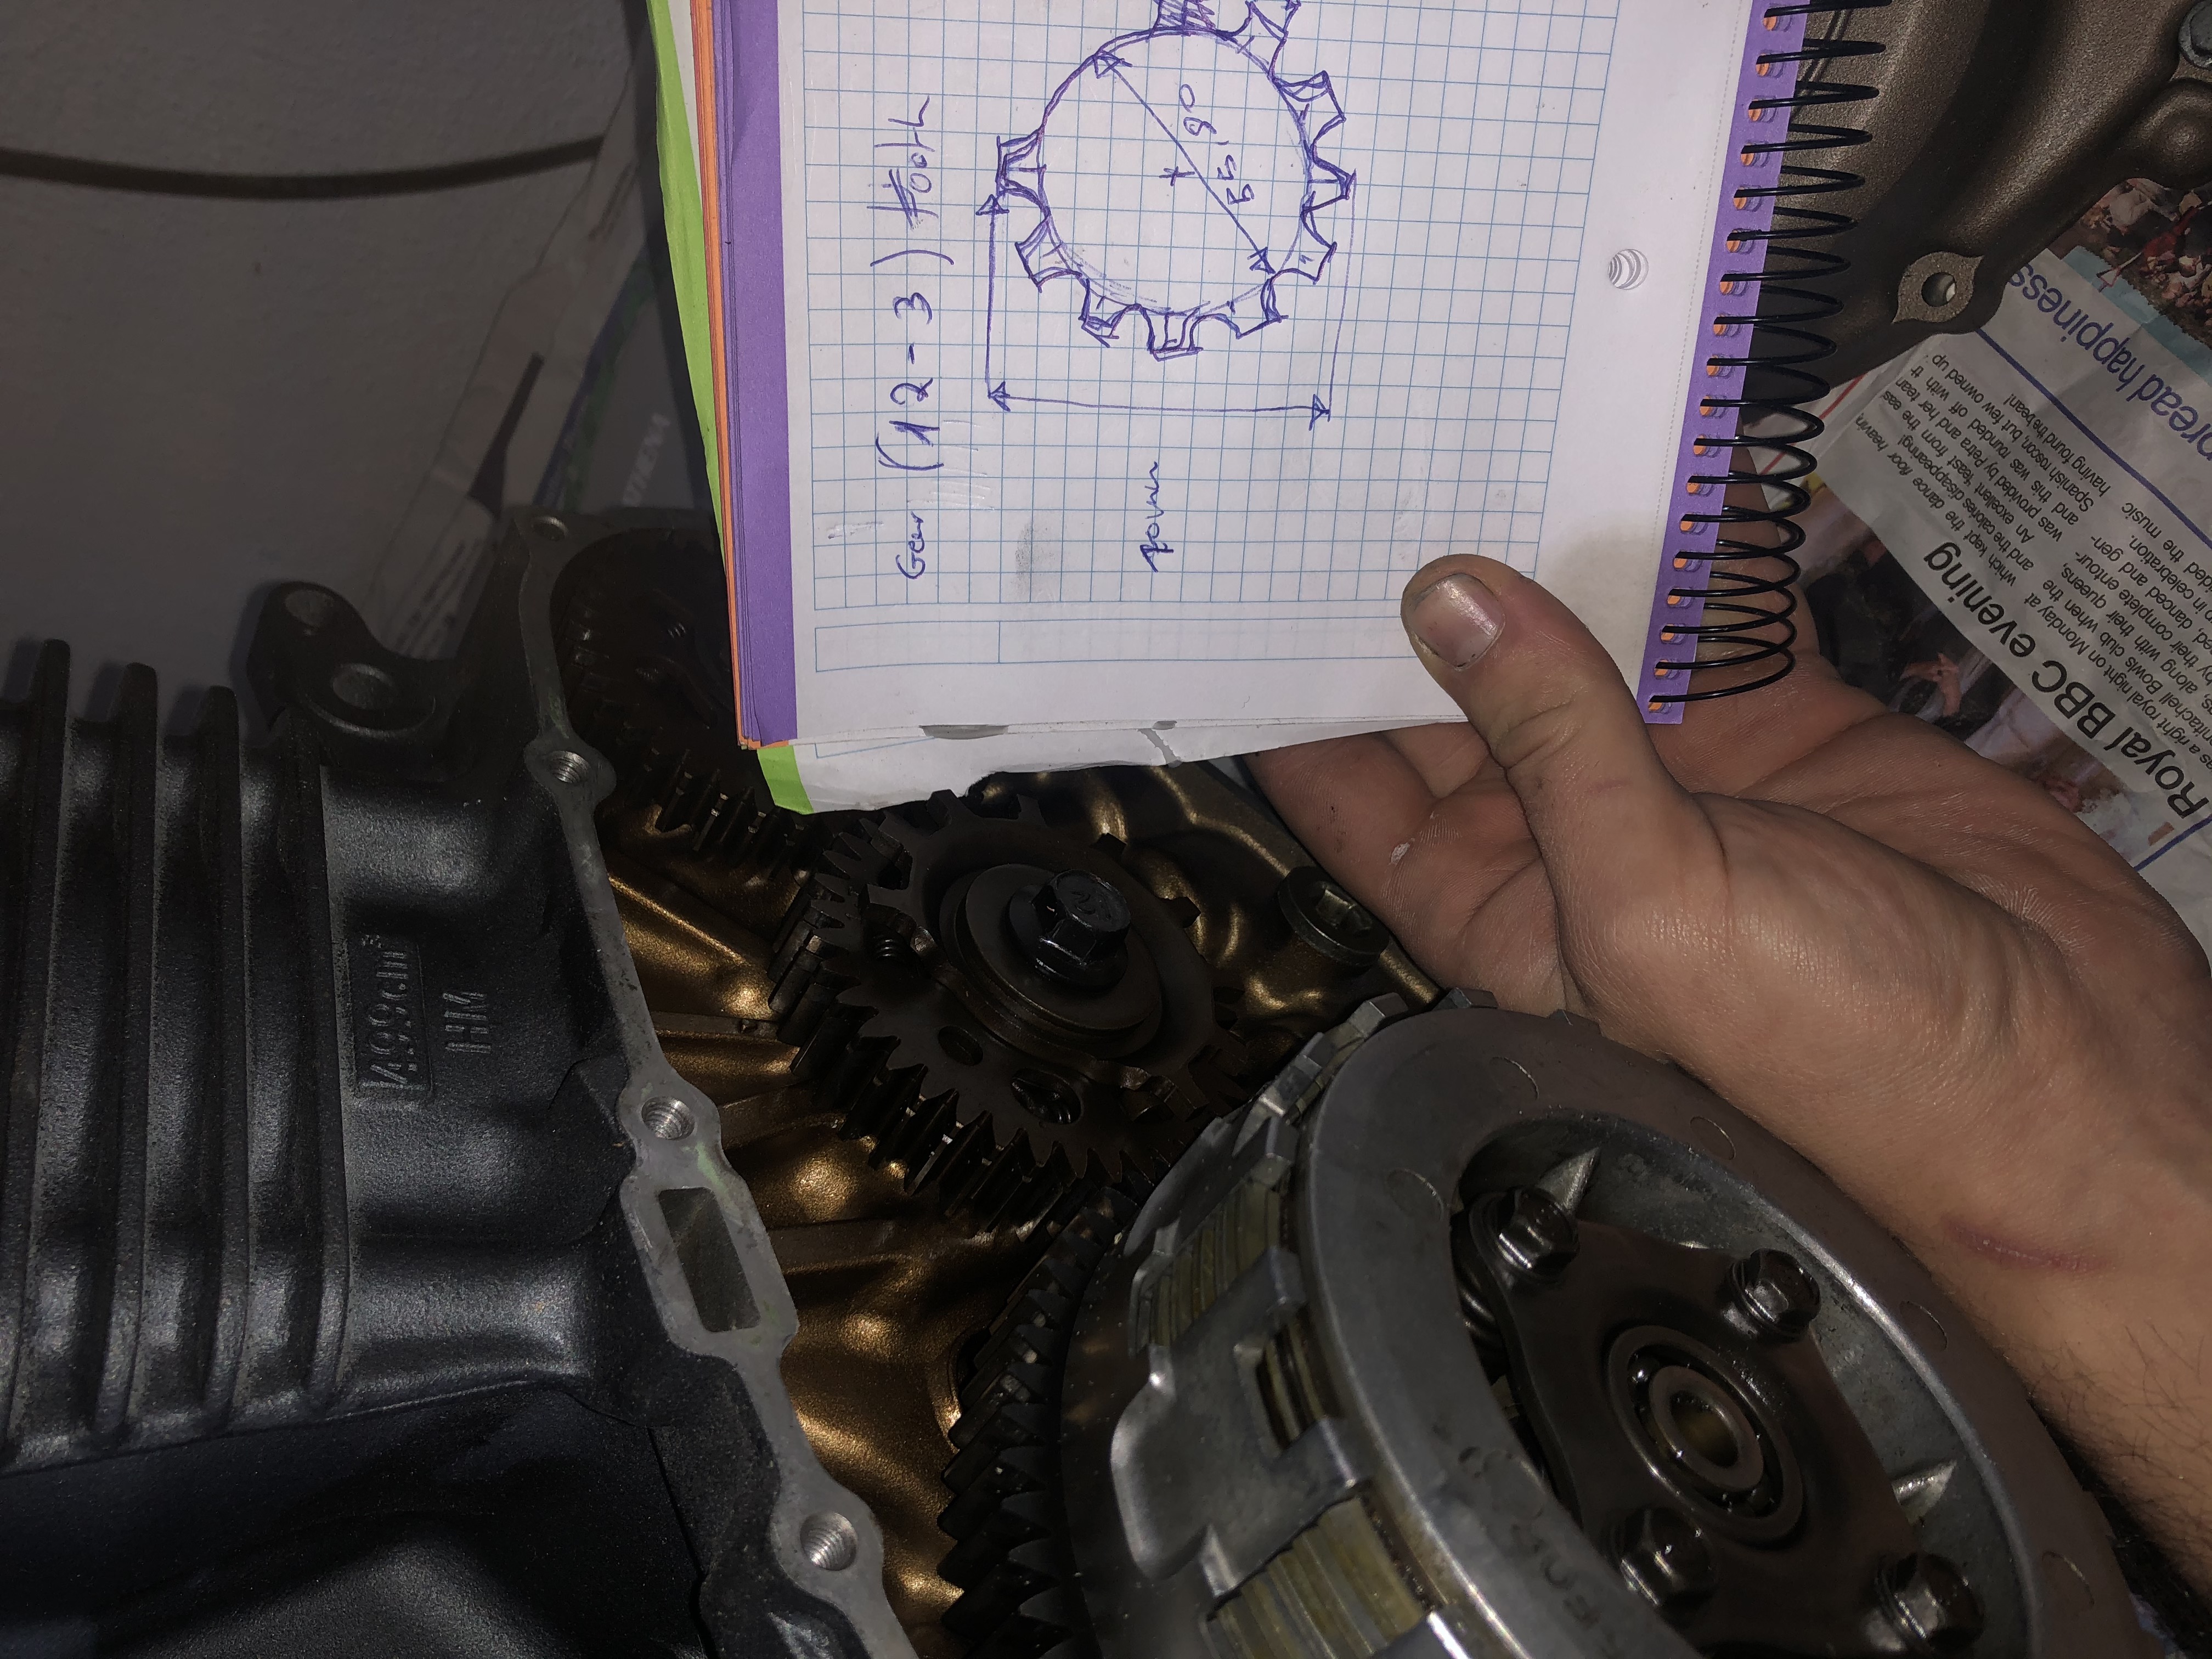 499cm³
HM
ATHENA
Gear (12-3) tooth
55,90
Royal BBC evening
as a right royal night on Monday at
Bowls club when the
along with their queens,
by their complete entour-
danced and gen-
up in celebration.
the music
which kept the dance floor
and the calories disappearing!
An excellent 'feast' from the
was provided by Petra and her
and this was rounded off with
Spanish roscon, but few owned up
having found the bean!
spread happiness